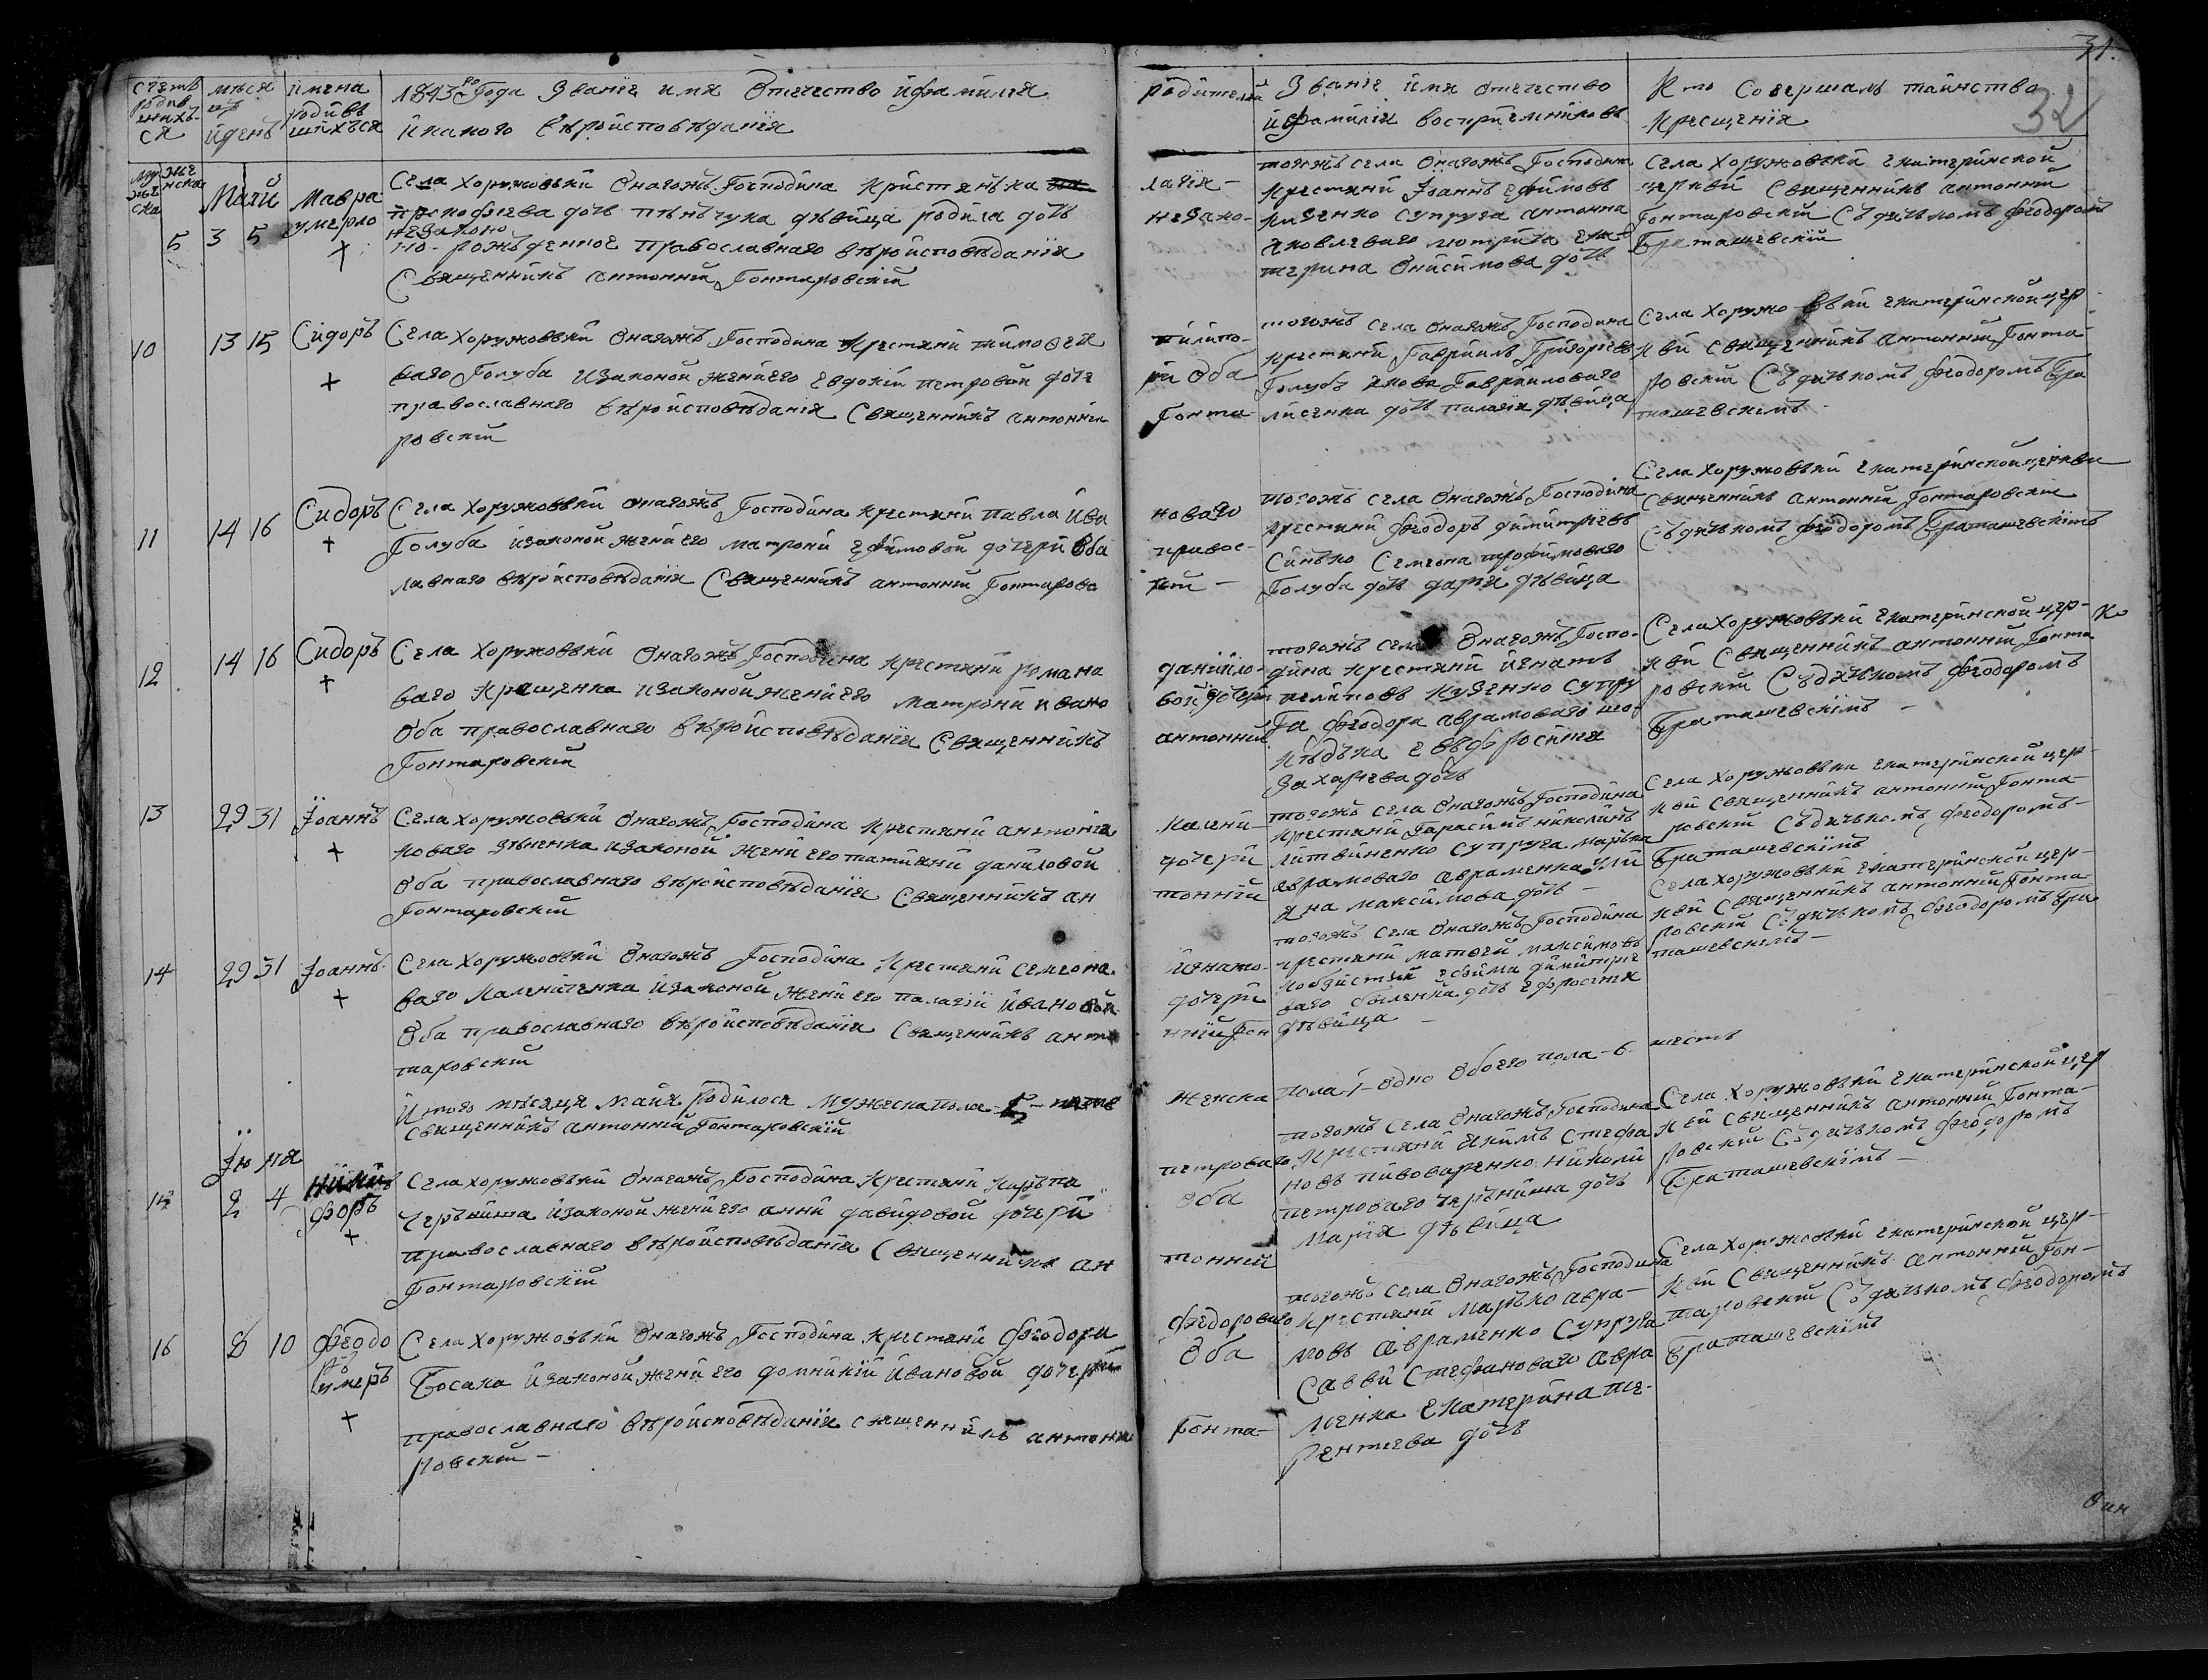 31.
32
счетъ родив шихъ ся
мѣся цъ и день
имена родивъ шихъся
1843го Года Званіе имя Отечество и фамилія
и какого вѣроисповѣданія
родителей
Званіе имя отечество
и фамилія восприемниковъ
Кто Совершалъ таинство
крещенія
муж еска
же нска
Маій
5 3 5
Мавра
умерло
Села Хоружовки Онагожъ Господина Кристянъка
прокофіева дочь дѣвица родила дочь
незаконо
но-рожъденное православнаго вѣроисповѣданія
Священникъ антонній Гонтаровскій
лагія-
незако-
тогожъ села Онагожъ Господина
Крестянй Іоаннъ Ефимовъ
Кизенко супруга антонна
яковлеваго Екате
терина Онисимова дочь
Села Хоружовки екатеринской
церкви Священникъ антонній
Гонтаровскій Съ дячькомъ феодоромъ
Браташевскій
10 13 15 Сидоръ
Села Хоружовки Онагожъ Господина Крестяни тимофея
ваго Голуба изаконой жени его Евдокіи петровой доче
православнаго вѣроисповѣданія Священникъ антонній
ровскій
пилипо-
ри Оба
Гонта-
тогожъ села онагожъ Господина
крестяни Гавриилъ Григориевъ
Голубъ якова Гавриловаго
лисенка дочь палагія дѣвица
Села Хоружовки екатеринской цер
кви Священникъ антонній Гонта-
ровскій Съ дячькомъ феодоромъ Бра
ташевскимъ
11 14 16 Сидоръ
Села Хоружовки онагожъ Господина крестяни павла ива
Голуба изаконой жени его матрони Ефимовой дочери Оба
лавнаго вѣроисповѣданія Священникъ антонній Гонтаровс
новаго
правос-
кій-
тогожъ села Онагожъ Господина
крестяни феодоръ димитріевъ
Синько Семена трофимоваго
Голуба дочь дарія дѣвица
Села Хоружовки екатеринской церкви
Священникъ антонній Гонтаровскій
Съ дячькомъ феодоромъ Браташевскимъ
12 14 16 Сидоръ
Села Хоружовки Онагожъ Господина крестяни романа
ваго Крященка изаконой жени его матрони ивано
Оба православнаго вѣроисповѣданія Священникъ
Гонтаровскій
даниило-
вой дочери
антонний
тогожъ села Онагожъ Госпо-
дина крестяни игнатъ
пилиповъ Кузенко супру
га феодора аврамоваго
Евфросинія
захариева дочь
Села Хоружовки екатеринской цер-
кви Священникъ антонній Гонта
ровскій Съ дячькомъ феодоромъ
Браташевскімъ
13 29 31 Іоаннъ
Села Хоружовки Онагожъ Господина крестяни антонія
коваго изаконой жени его татияни даниловой
Оба православнаго вѣроисповѣданія Священникъ ан
Гонтаровскій
дочери
тонній
тогожъ села Онагожъ Господина
крестяни Гарасимъ николинъ
литвиненко супруга марька
аврамоваго авраменка Ули
яна максимова дочь
Села Хоружовки екатеринской цер-
кви Священникъ антонній Гонта-
ровскій Съ дячькомъ феодоромъ-
Браташевскімъ
14 29 31 Іоаннъ
Села Хоружовки Онагожъ Господина крестяни семеона
ваго изаконой жени его палагіи ивановой
Оба православнаго вѣроисповѣданія Священникъ анто
таровскій
игнато-
дочери
нний Гон
тогожъ села Онагожъ Господина
крестяни матоей максимовъ
ефима димитрие
ваго дочь Ефросиния
дѣвица
Села Хоружовки екатеринской цер-
кви Священникъ антонній Гонта
ровскій Съ дячькомъ феодоромъ Бра
ташевскімъ
Итого мѣсяця маия родилося мужеска пола-5-пять
Священникъ антонній Гонтаровскій
женска
пола-1-одно Обоего пола-6- шесть
Июня
15 2 4
форъ
Села Хоружовки Онагожъ Господина крестяни карьпа
изаконой жени его анни давидовой дочери
православнаго вѣроисповѣданія Священникъ ан
Гонтаровскій
петроваго
оба
тонний
тогожъ села Онагожъ Господина
крестяни якимъ Стефа
новъ пивоваренко николи
петроваго дочь
Марія дѣвица
Села Хоружовки екатеринской цер
кви Священникъ антонній Гонта-
ровскій Съ дячькомъ феодоромъ
Браташевскімъ
16 8 10 феодо
ръ
умеръ
Села Хоружовки Онагожъ Господина крестяни феодора
Босака изаконой жени его домникіи ивановой дочери
православнаго вѣроисповѣданія священникъ антонни
ровскій-
феодороваго
Оба
Гонта-
тогожъ села Онагожъ Господина
крестяни марько авра-
мовъ авраменко супруга
Савви Стефановаго авра
менка екатерина те-
рентиева дочь
Села Хоружовки екатеринской цер-
кви Священникъ антонній Гон-
таровскій Съ дячькомъ феодоромъ
Браташевскімъ